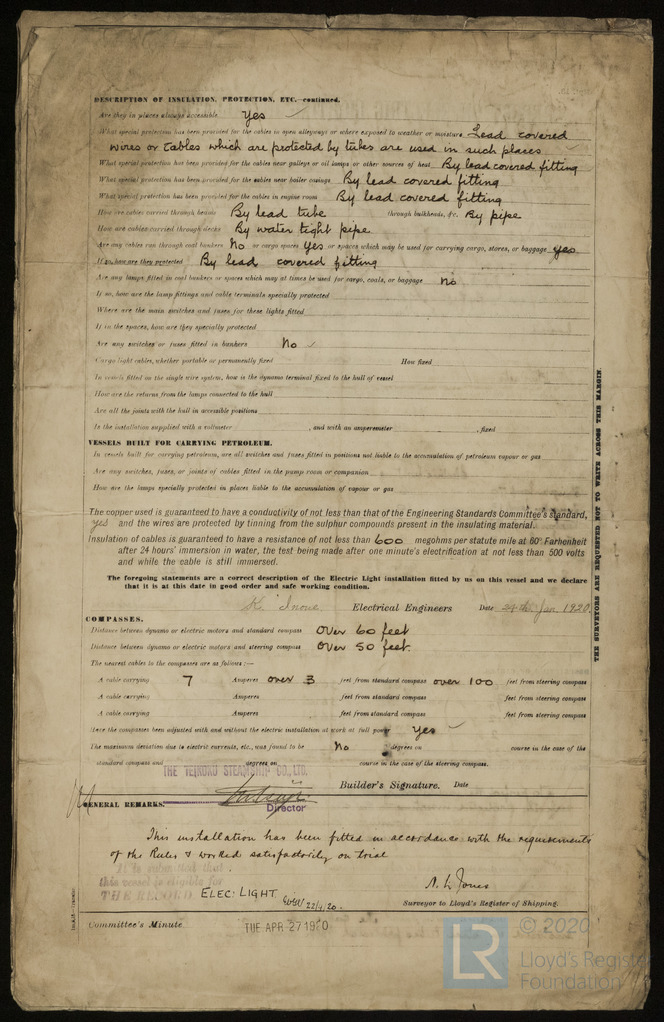 DESCRIPTION OF INSULATION, PROTECTION, ETC.—continued.
Are they in places always accessible Yes
What special protection has been provided for the cables in open alleyways or where exposed to weather or moisture Lead covered
wires or cables which are protected by tubes are used in such places
What special protection has been provided for the cables near galleys or oil lamps or other sources of heat By lead covered fitting
What special protection has been provided for the cables near boiler casings By lead covered fitting
What special protection has been provided for the cables in engine room By lead covered fitting
How are cables carried through beams By lead tube through bulkheads, &c. By pipe
How are cables carried through decks By water tight pipe
Are any cables run through coal bunkers No or cargo spaces Yes or spaces which may be used for carrying cargo, stores, or baggage yes
If so, how are they protected By lead covered fitting
Are any lamps fitted in coal bunkers or spaces which may at times be used for cargo, coals, or baggage No
If so, how are the lamp fittings and cable terminals specially protected
Where are the main switches and fuses for these lights fitted
If in the spaces, how are they specially protected
Are any switches or fuses fitted in bunkers No
Cargo light cables, whether portable or permanently fixed How fixed
In vessels fitted on the single wire system, how is the dynamo terminal fixed to the hull of vessel
How are the returns from the lamps connected to the hull
Are all the joints with the hull in accessible positions
Is the installation supplied with a voltmeter , and with an amperemeter , fixed
VESSELS BUILT FOR CARRYING PETROLEUM.
In vessels built for carrying petroleum, are all switches and fuses fitted in positions not liable to the accumulation of petroleum vapour or gas
Are any switches, fuses, or joints of cables fitted in the pump room or companion
How are the lamps specially protected in places liable to the accumulation of vapour or gas
The copper used is guaranteed to have a conductivity of not less than that of the Engineering Standards Committee's standard,
yes and the wires are protected by tinning from the sulphur compounds present in the insulating material.
Insulation of cables is guaranteed to have a resistance of not less than 600 megohms per statute mile at 60° Farhenheit
after 24 hours' immersion in water, the test being made after one minute's electrification at not less than 500 volts
and while the cable is still immersed.
The foregoing statements are a correct description of the Electric Light installation fitted by us on this vessel and we declare
that it is at this date in good order and safe working condition.
K. Inoue Electrical Engineers Date 24th Jan. 1920.
COMPASSES.
Distance between dynamo or electric motors and standard compass over 60 feet
Distance between dynamo or electric motors and steering compass over 50 feet.
The nearest cables to the compasses are as follows:—
A cable carrying 7 Amperes over 3 feet from standard compass over 100 feet from steering compass
A cable carrying Amperes feet from standard compass feet from steering compass
A cable carrying Amperes feet from standard compass feet from steering compass
Have the compasses been adjusted with and without the electric installation at work at full power yes
The maximum deviation due to electric currents, etc., was found to be No degrees on course in the case of the
standard compass and degrees on course in the case of the steering compass.
THE TEIKOKU STEAMSHIP CO., LTD.
Builder's Signature. Date
Director
GENERAL REMARKS.
This installation has been fitted in accordance with the requirements
of the Rules & worked satisfactorily on trial
It is submitted that
this vessel is eligible for
THE RECORD ELEC: LIGHT 22/4/20.
N. L. Jones
Surveyor to Lloyd's Register of Shipping.
Committee's Minute TUE APR 27 1920
THE SURVEYORS ARE REQUESTED NOT TO WRITE ACROSS THIS MARGIN.
LR
© 2020
Lloyd's Register
Foundation